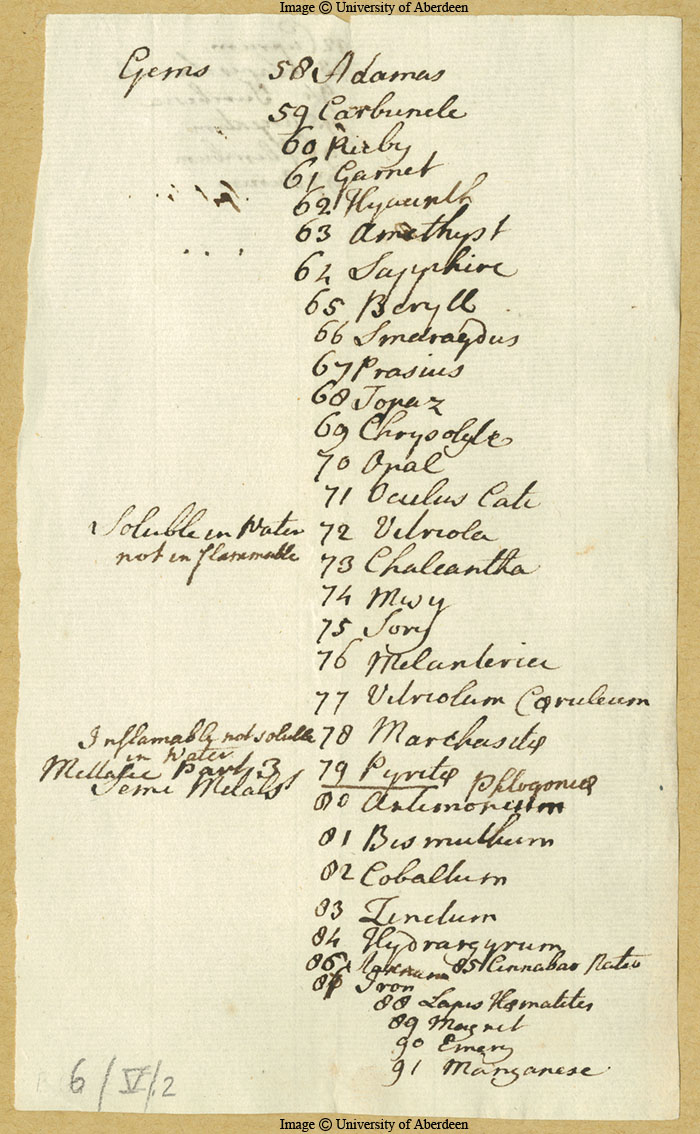 Image © University of Aberdeen
Gems 58 Adamas
59 Carbuncle
60 Ruby
61 Garnet
62 Hyacinth
63 Amethyst
64 Sapphire
65 Beryll
66 Smaragdus
67 Prasius
68 Topaz
69 Chrysolyte
70 Opal
71 Oculus Cati
Soluble in Water 72 Vitriola
not inflammable 73 Chalcantha
74 Misy
75 Sory
76 Melanteria
77 Vitriolum Cæruleum
Inflamable not soluble 78 Marchasitæ
in Water
Mettalic Part 3 79 Pyritæ
Semi Metals 80 Antimonium
81 Bismuthum
82 Cobaltum
83 Zincum
84 Hydrargyrum
86 85 Cinnabar Nativ
87 Iron
88 Lapis Hæmatites
89 Magnet
90 Emery
91 Manganese
6/V/.2
Image © University of Aberdeen